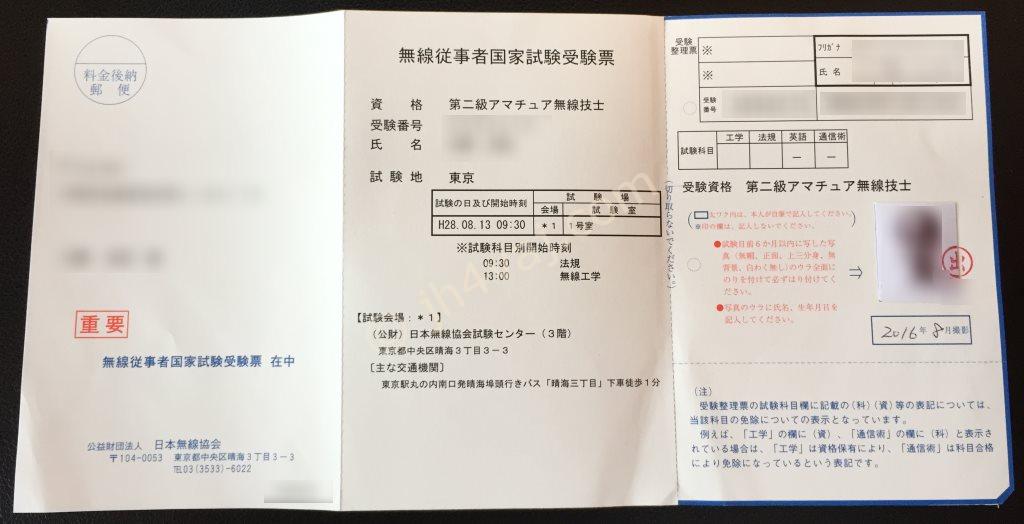 料金後納
郵便
重要
無線従事者国家試験受験票 在中
公益財団法人 日本無線協会
〒104-0053 東京都中央区晴海3丁目3-3
TEL03(3533)-6022
無線従事者国家試験受験票
資格 第二級アマチュア無線技士
受験番号
氏名
試験地 東京
試験の日及び開始時刻 試験場
会場 試験室
H28.08.13 09:30 *1 1号室
※試験科目別開始時刻
09:30 法規
13:00 無線工学
【試験会場:*1】
(公財)日本無線協会試験センター(3階)
東京都中央区晴海3丁目3-3
〔主な交通機関〕
東京駅丸の内南口発晴海埠頭行きバス「晴海三丁目」下車徒歩1分
(切り取らないでください。)
受験整理票
※
※
フリガナ
氏名
受験番号
試験科目 工学 法規 英語 通信術
― ―
受験資格 第二級アマチュア無線技士
(太ワク内は、本人が自筆で記入してください。
※印の欄は、記入しないでください。)
●試験日前6か月以内に写した写
真(無帽、正面、上三分身、無
背景、白わく無し)のウラ全面に
のりを付けて必ずはり付けてく
ださい。
⇒
●写真のウラに氏名、生年月日を
記入してください。
2016年8月撮影
(注)
受験整理票の試験科目欄に記載の(科)(資)等の表記については、
当該科目の免除についての表示となっています。
例えば、「工学」の欄に(資)、「通信術」の欄に(科)と表示さ
れている場合は、「工学」は資格保有により、「通信術」は科目合格
により免除になっているという表記です。